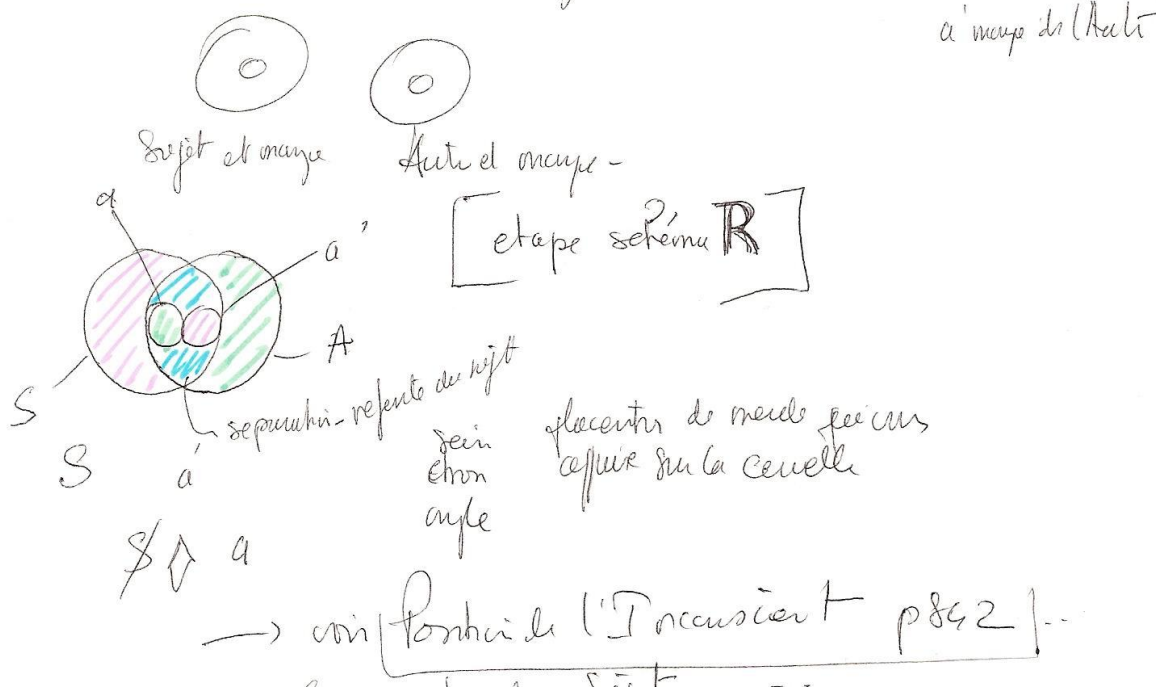 a' image de l'Autre
Sujet et image
Autre et image -
a
a'
[etape schéma R]
A
S
separation - refente du sujet
S
a'
sein
etron
ongle
placentas de merde qui vous
appuie sur la cervelle
$ ◊ a
→ voir Position de l'Inconscient p842 ..